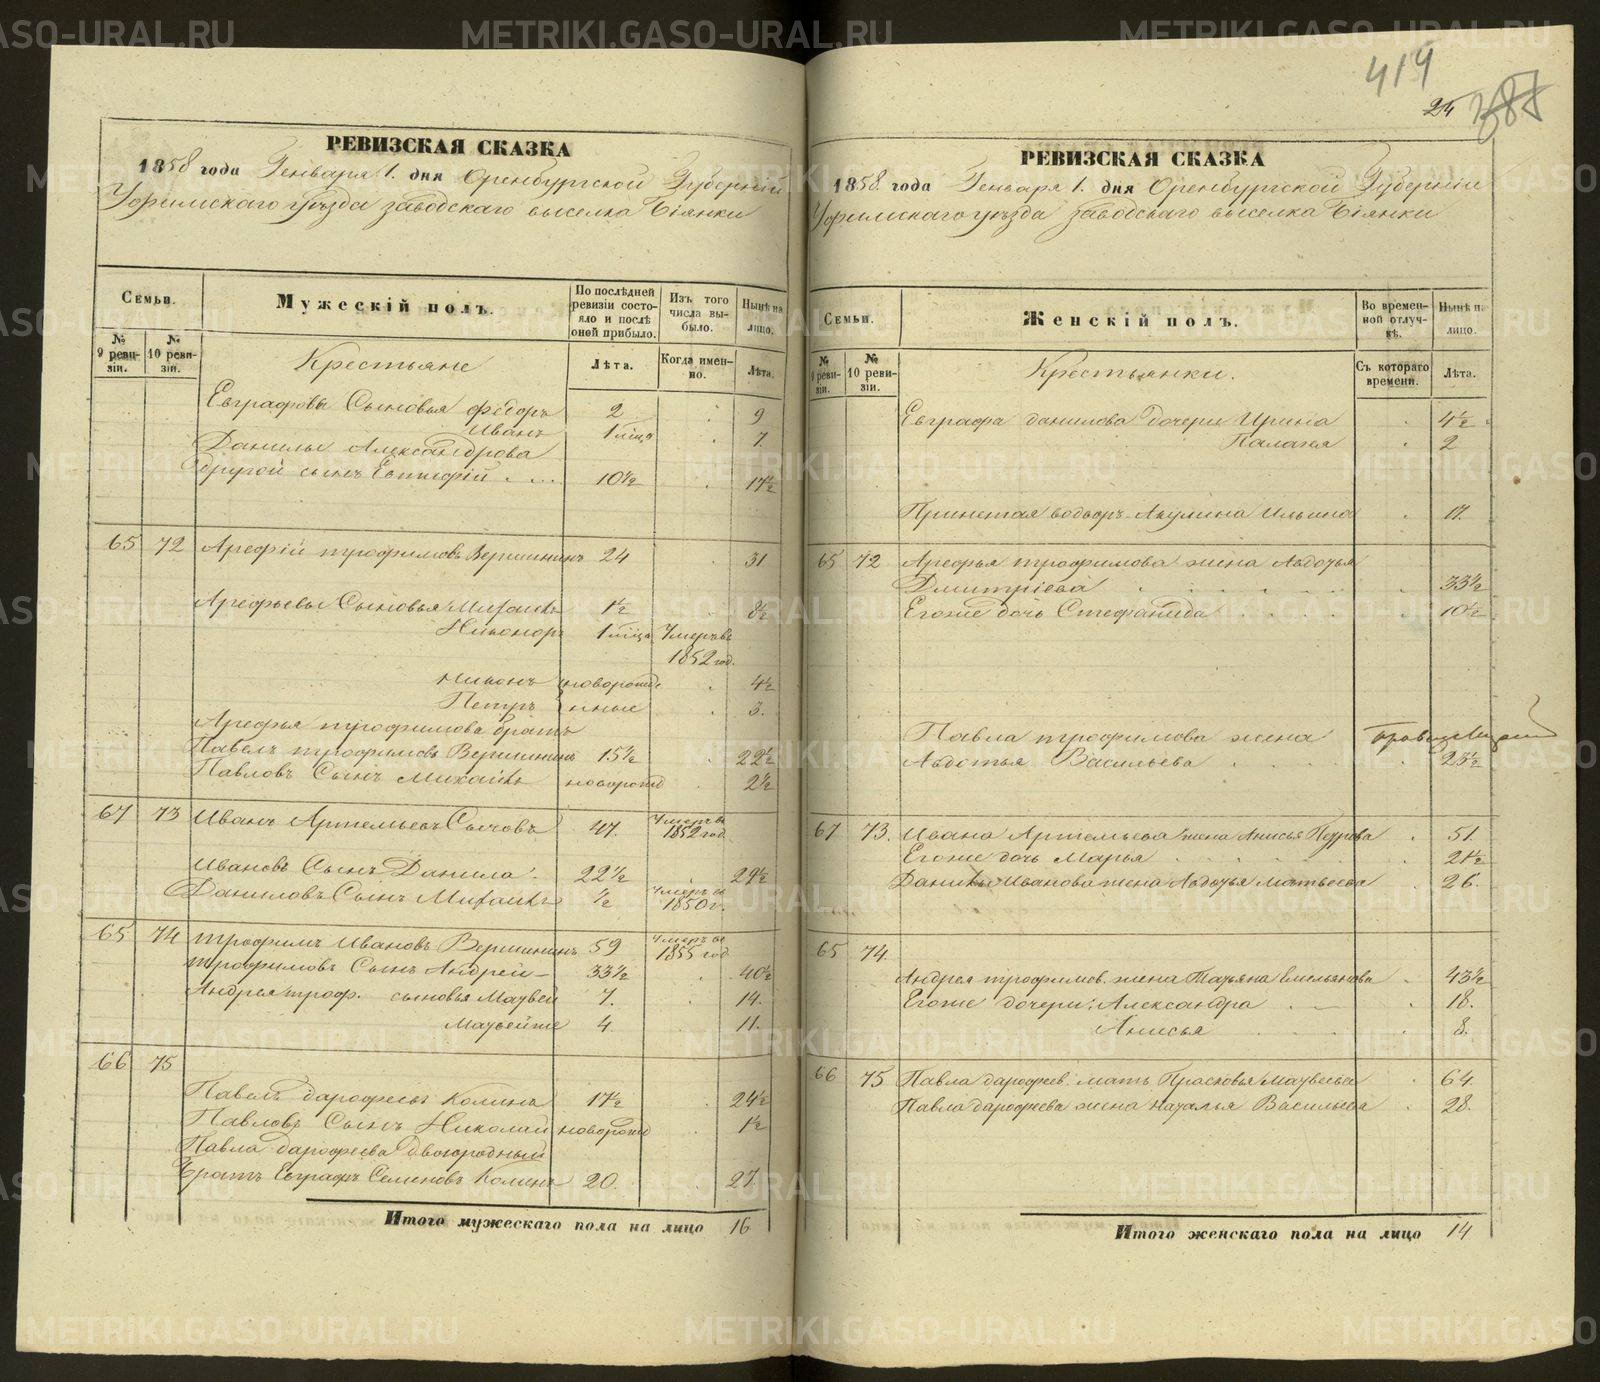 419
24
РЕВИЗСКАЯ СКАЗКА
1858 года Генваря 1. дня Оренбургской Губерніи
Уфимскаго уѣзда заводскаго выселка Біянки
Семьи.
Мужескій полъ.
По послѣдней ревизіи состояло и послѣ оней прибыло.
Изъ того числа выбыло.
Нынѣ на лицо.
№ 9 ревизіи.
№ 10 ревизіи.
Крестьяне
Лѣта.
Когда именно.
Лѣта.
Евграфовы Сыновья Фёдоръ 2 . 9
Иванъ 1 мѣца . 7
Данилы Александрова
другой сынъ 10½ . 17½
65 72 Арефій трофимовъ Вершининъ 24 31
Арефьевы Сыновья Михаилъ 1½ . 8½
Никоноръ 1 мѣца Умеръ въ
1852 год.
Никонъ новорожде . 4½
Петръ нные . 3.
Арефья трофимова братъ
Павелъ трофимовъ Вершининъ 15½ . 22½
Павловъ Сынъ Михаилъ новорожд . 2½
67 73 Иванъ Артемьевъ Сычовъ 47. Умеръ въ 1852 год
Ивановъ Сынъ Данила. 22½ . 29½
Даниловъ Сынъ Михаилъ ½ Умеръ въ 1850 г.
65 74 трофимъ Ивановъ Вершининъ 59 Умеръ въ 1855 год
трофимовъ Сынъ Андрей 33½ . 40½
Андрея троф. сыновья Матвей 7. . 14.
Матвей же 4. . 11.
66 75
Павелъ дарофеевъ Коминъ 17½ . 24½
Павловъ Сынъ Николай новорожд . 1½
Павла дарофеева двоюродный
братъ Евграфъ Семеновъ Коминъ 20. . 27.
Итого мужескаго пола на лицо 16
РЕВИЗСКАЯ СКАЗКА
1858 года Генваря 1. дня Оренбургской Губерніи
Уфимскаго уѣзда заводскаго выселка Біянки
Семьи.
Женскій полъ.
Во временной отлучкѣ.
Нынѣ на лицо.
№ 9 ревизіи.
№ 10 ревизіи.
Крестьянки.
Съ котораго времени.
Лѣта.
Евграфа данилова дочери Ирина . 4½
Палагея . 2
Принетая водворъ Акулина Ильина . 17.
65 72 Арефья трофимова жена Авдотья
Дмитріева . 33½
Егоже дочь Стефанида . 10½
Павла трофимова жена
Авдотья Васильева . 23½
67 73. Ивана Артемьева жена Анисья Петрова . 51.
Егоже дочь Марья . 21½
Данилы Иванова жена Авдотья Матвеева . 26.
65 74.
Андрея трофимов. жена Татьяна Емельянова . 43½
Егоже дочери: Александра . 18.
Анисья . 8.
66 75 Павла дарофеев. мать Прасковья Матвеева . 64.
Павла дарофеева жена Наталья Васильева . 28.
Итого женскаго пола на лицо 14
METRIKI.GASO-URAL.RU